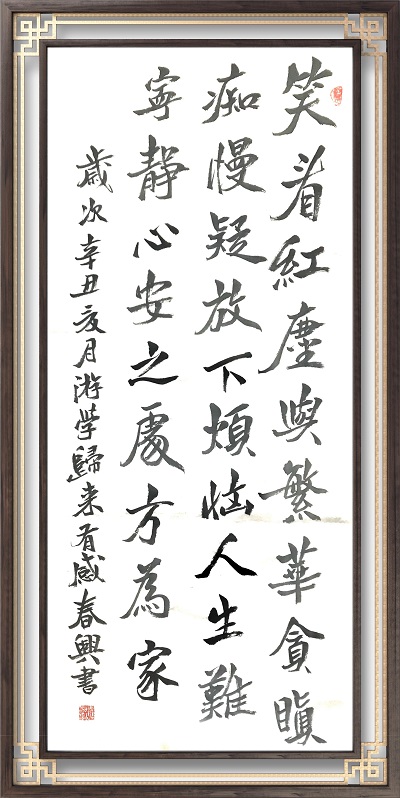 笑看紅塵與繁華貪瞋
痴慢疑放下煩惱人生難
寧靜心安之處方為家
歲次辛丑亥月游学歸来有感春興書